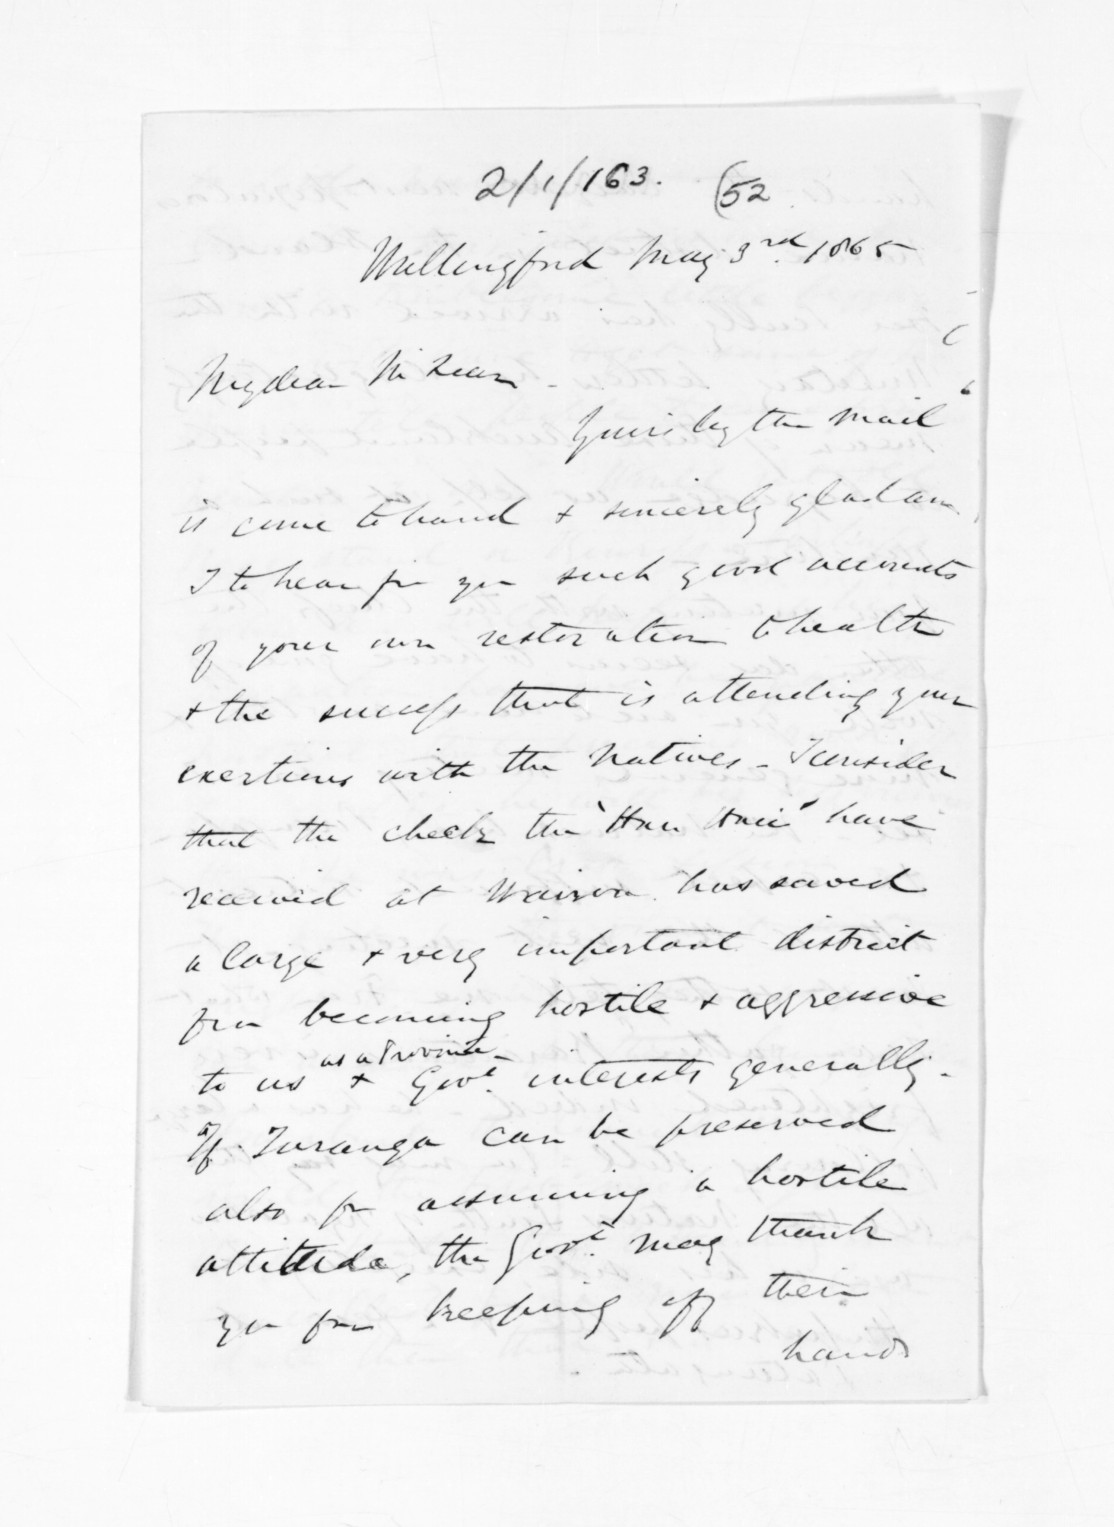 2/1/163. (52
Wallingford May 3rd. 1865
My dear McLean -
Yours by the Mail
is come to hand & sincerely glad am
I to hear fm you such good accounts
of your own restoration to health
& the success that is attending your
exertions with the Natives - I consider
that the check the "Hau Hau" have
received at Wairoa has saved
a large & very important district
from becoming hostile & aggressive
to us as a Province & Govt. interests generally -
If Turanga can be preserved
also fm assuming a hostile
attitude, the Govt. may thank
you for keeping off their
hands